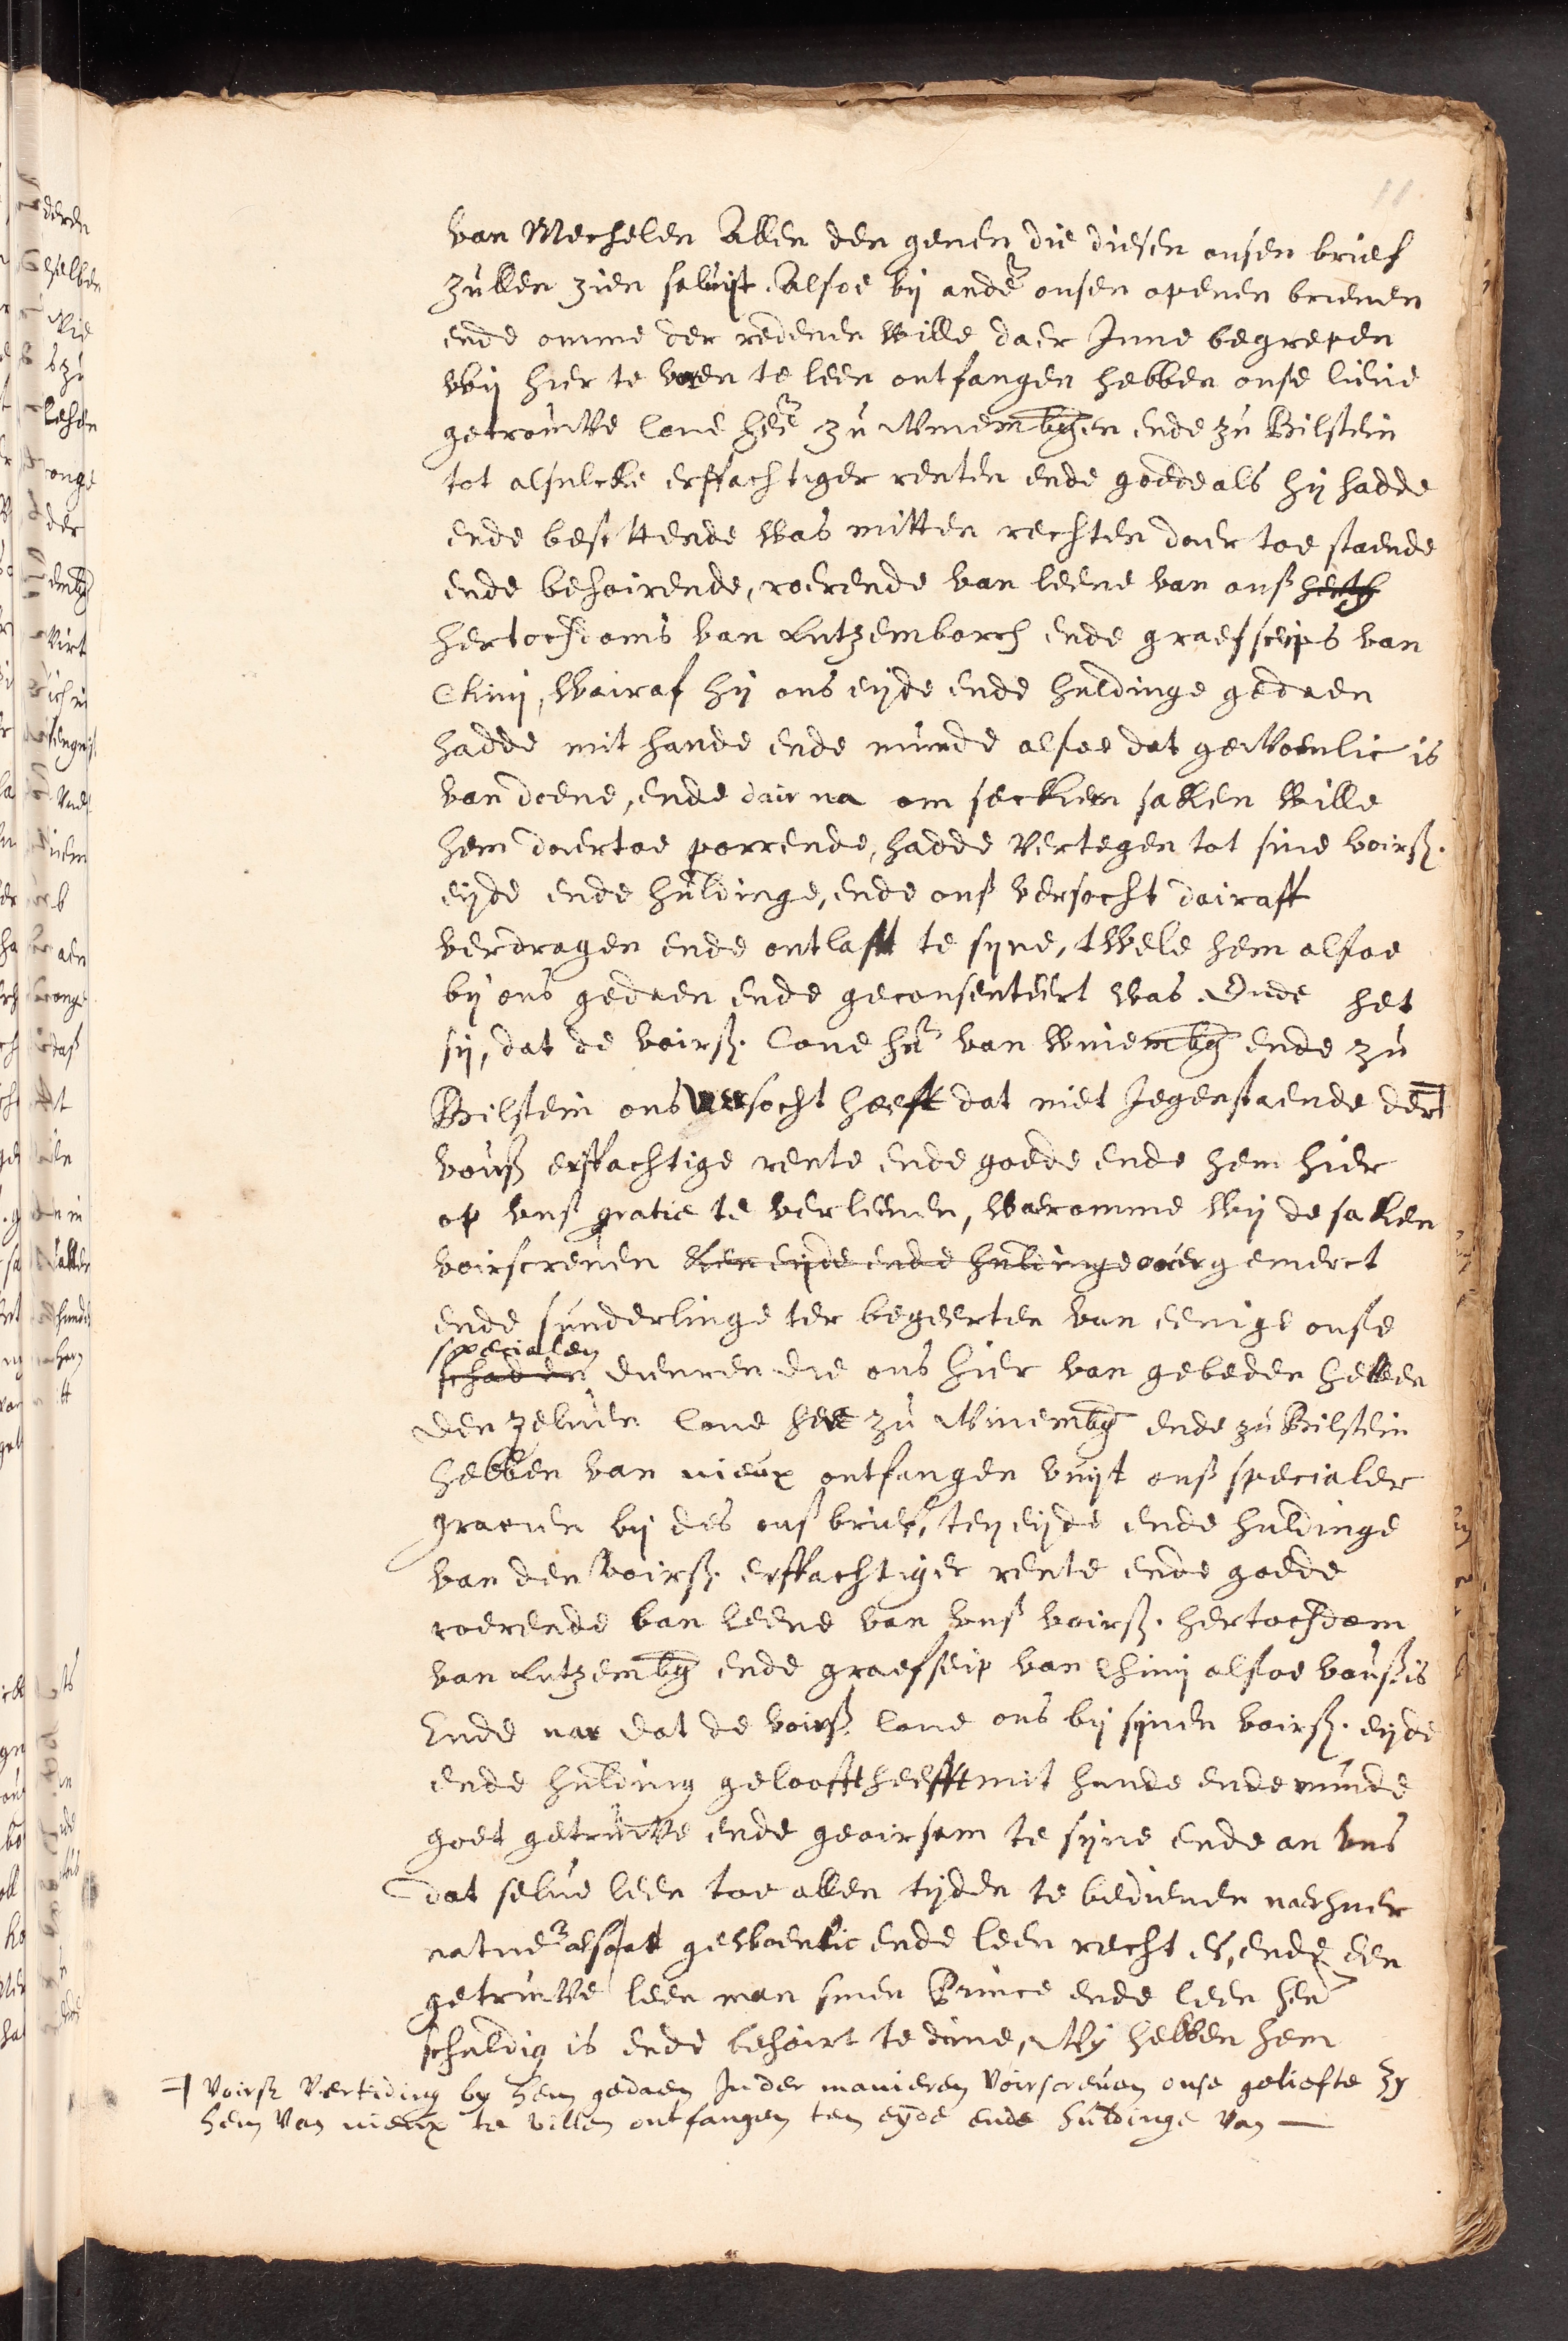 11
van Mechelen Allen den genen die diesen onsen brief
zullen zien saluijt. Alsoe bij ander onsen openen brieuen
ende omme der redenen wille daer Inne begrepen
wij hier te voren te leen ontfangen hebben onse lieue
getrouwe Cone heer zu Winembgen ende zu Bilstein
tot alsulcke erffachtiger renten ende goede als hij hadde
ende besittende was mitten rechten daer toe staende
ende behoirende, roerende van leene van onß hertz
hertochdoms van Lutzemborch ende graefscips van
Chini, wairaf hij ons eijde ende huldinge gedaen
hadde mit hande ende munde alsoe dat gewoenlic is
van doene, ende dair na om seckren saken wille
hem daertoe porrende, hadde Vertegen tot sine voirß.
eijde ende huldinge, ende onß versocht dairaff
verdragen ende ontlast te syne, twelc hem alsoe
bij ons gedaen ende geconsenteert was. Ende het
sij, dat de voirß. Cone her van Winembg ende zu
Bilstein ons versocht heeft dat niet Jegenstaende der ꟻ
vourß erffachtige rente ende goede ende hem hier
op vnß gratie te verleenen, waeromme wij de saken
voirscreuen ten eijde ende huldinge ouergemerct
ende sunderlinge ter begeerten van eenige onse
specialen
schadden dienren die ons hier van gebeden hebben
den zeluen Cone heer zu Winembg ende zu Bilstein
hebben van nieux ontfangen vuijt onß specialer
gracien bij des onß brief, ten eijde ende huldinge
van den voirß. erffachtiger rente ende goede
roerende van leene van vnß voirß. hertochdom
van Lutzembg ende graefscip van Chini alsoe vourß is
Ende nae dat de voirß. Cone ons bij synen voirß. eijde
ende hulding gelooft heefft mit hande ende munde
goet getruwe ende geoirsam te syne ende an vns
dat selue leen toe allen tyden te bedienen naer huer
natuer alsoet gewoenlic ende leen recht es, ende een
getruwe leen man sinen Prince ende leen heer
schuldig is ende behoirt te dune, Wij hebben hem
ꟻ voirß Vertiding by hem gedaen Inder manieren voirscreuen onse geliefte zy
hem van nieux te willen ontfangen ten eyde ende huldinge van —